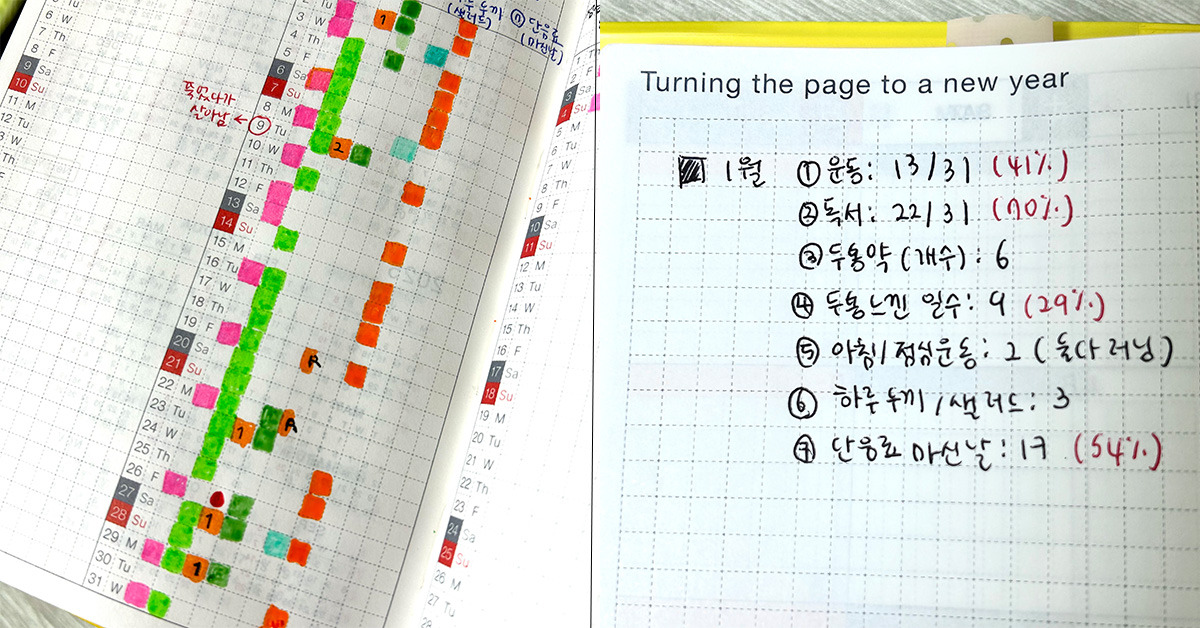 (샐러드)
⑦ 단음료
(마신날)
2 Tu
3 W
4 Th
5 F
6 Sa
7 Su
8 M
9 Tu
10 W
11 Th
12 F
13 Sa
14 Su
15 M
16 Tu
17 W
18 Th
19 F
20 Sa
21 Su
22 M
23 Tu
24 W
25 Th
26 F
27 Sa
28 Su
29 M
30 Tu
31 W
살아남 ←
1
2
R
R
1
1
1
6 Tu
7 W
8 Th
9 F
10 Sa
11 Su
12 M
13 Tu
14 W
15 Th
16 F
17 Sa
18 Su
19 M
20 Tu
21 W
22 Th
23 F
24 Sa
25 Su
26 M
27 Tu
28
Turning the page to a new year
1월 ① 운동: 13/31 (41%)
② 독서: 22/31 (70%)
③ 두통약(개수): 6
④ 두통느낀 일수: 9 (29%)
⑤ 아침/점심운동: 2 (둘다 러닝)
⑥ 하루두끼/샐러드: 3
⑦ 단음료 마신날: 17 (54%)